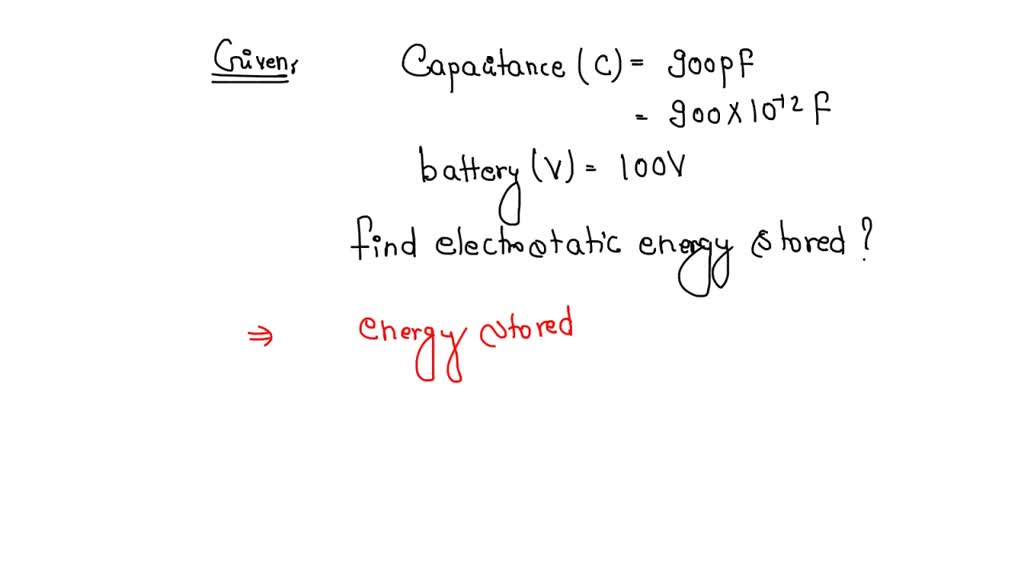 Given,
Capacitance (C) = 900pF
= 900 X 10⁻¹² F
battery (V) = 100V
find electrostatic energy stored ?
⇒ energy stored